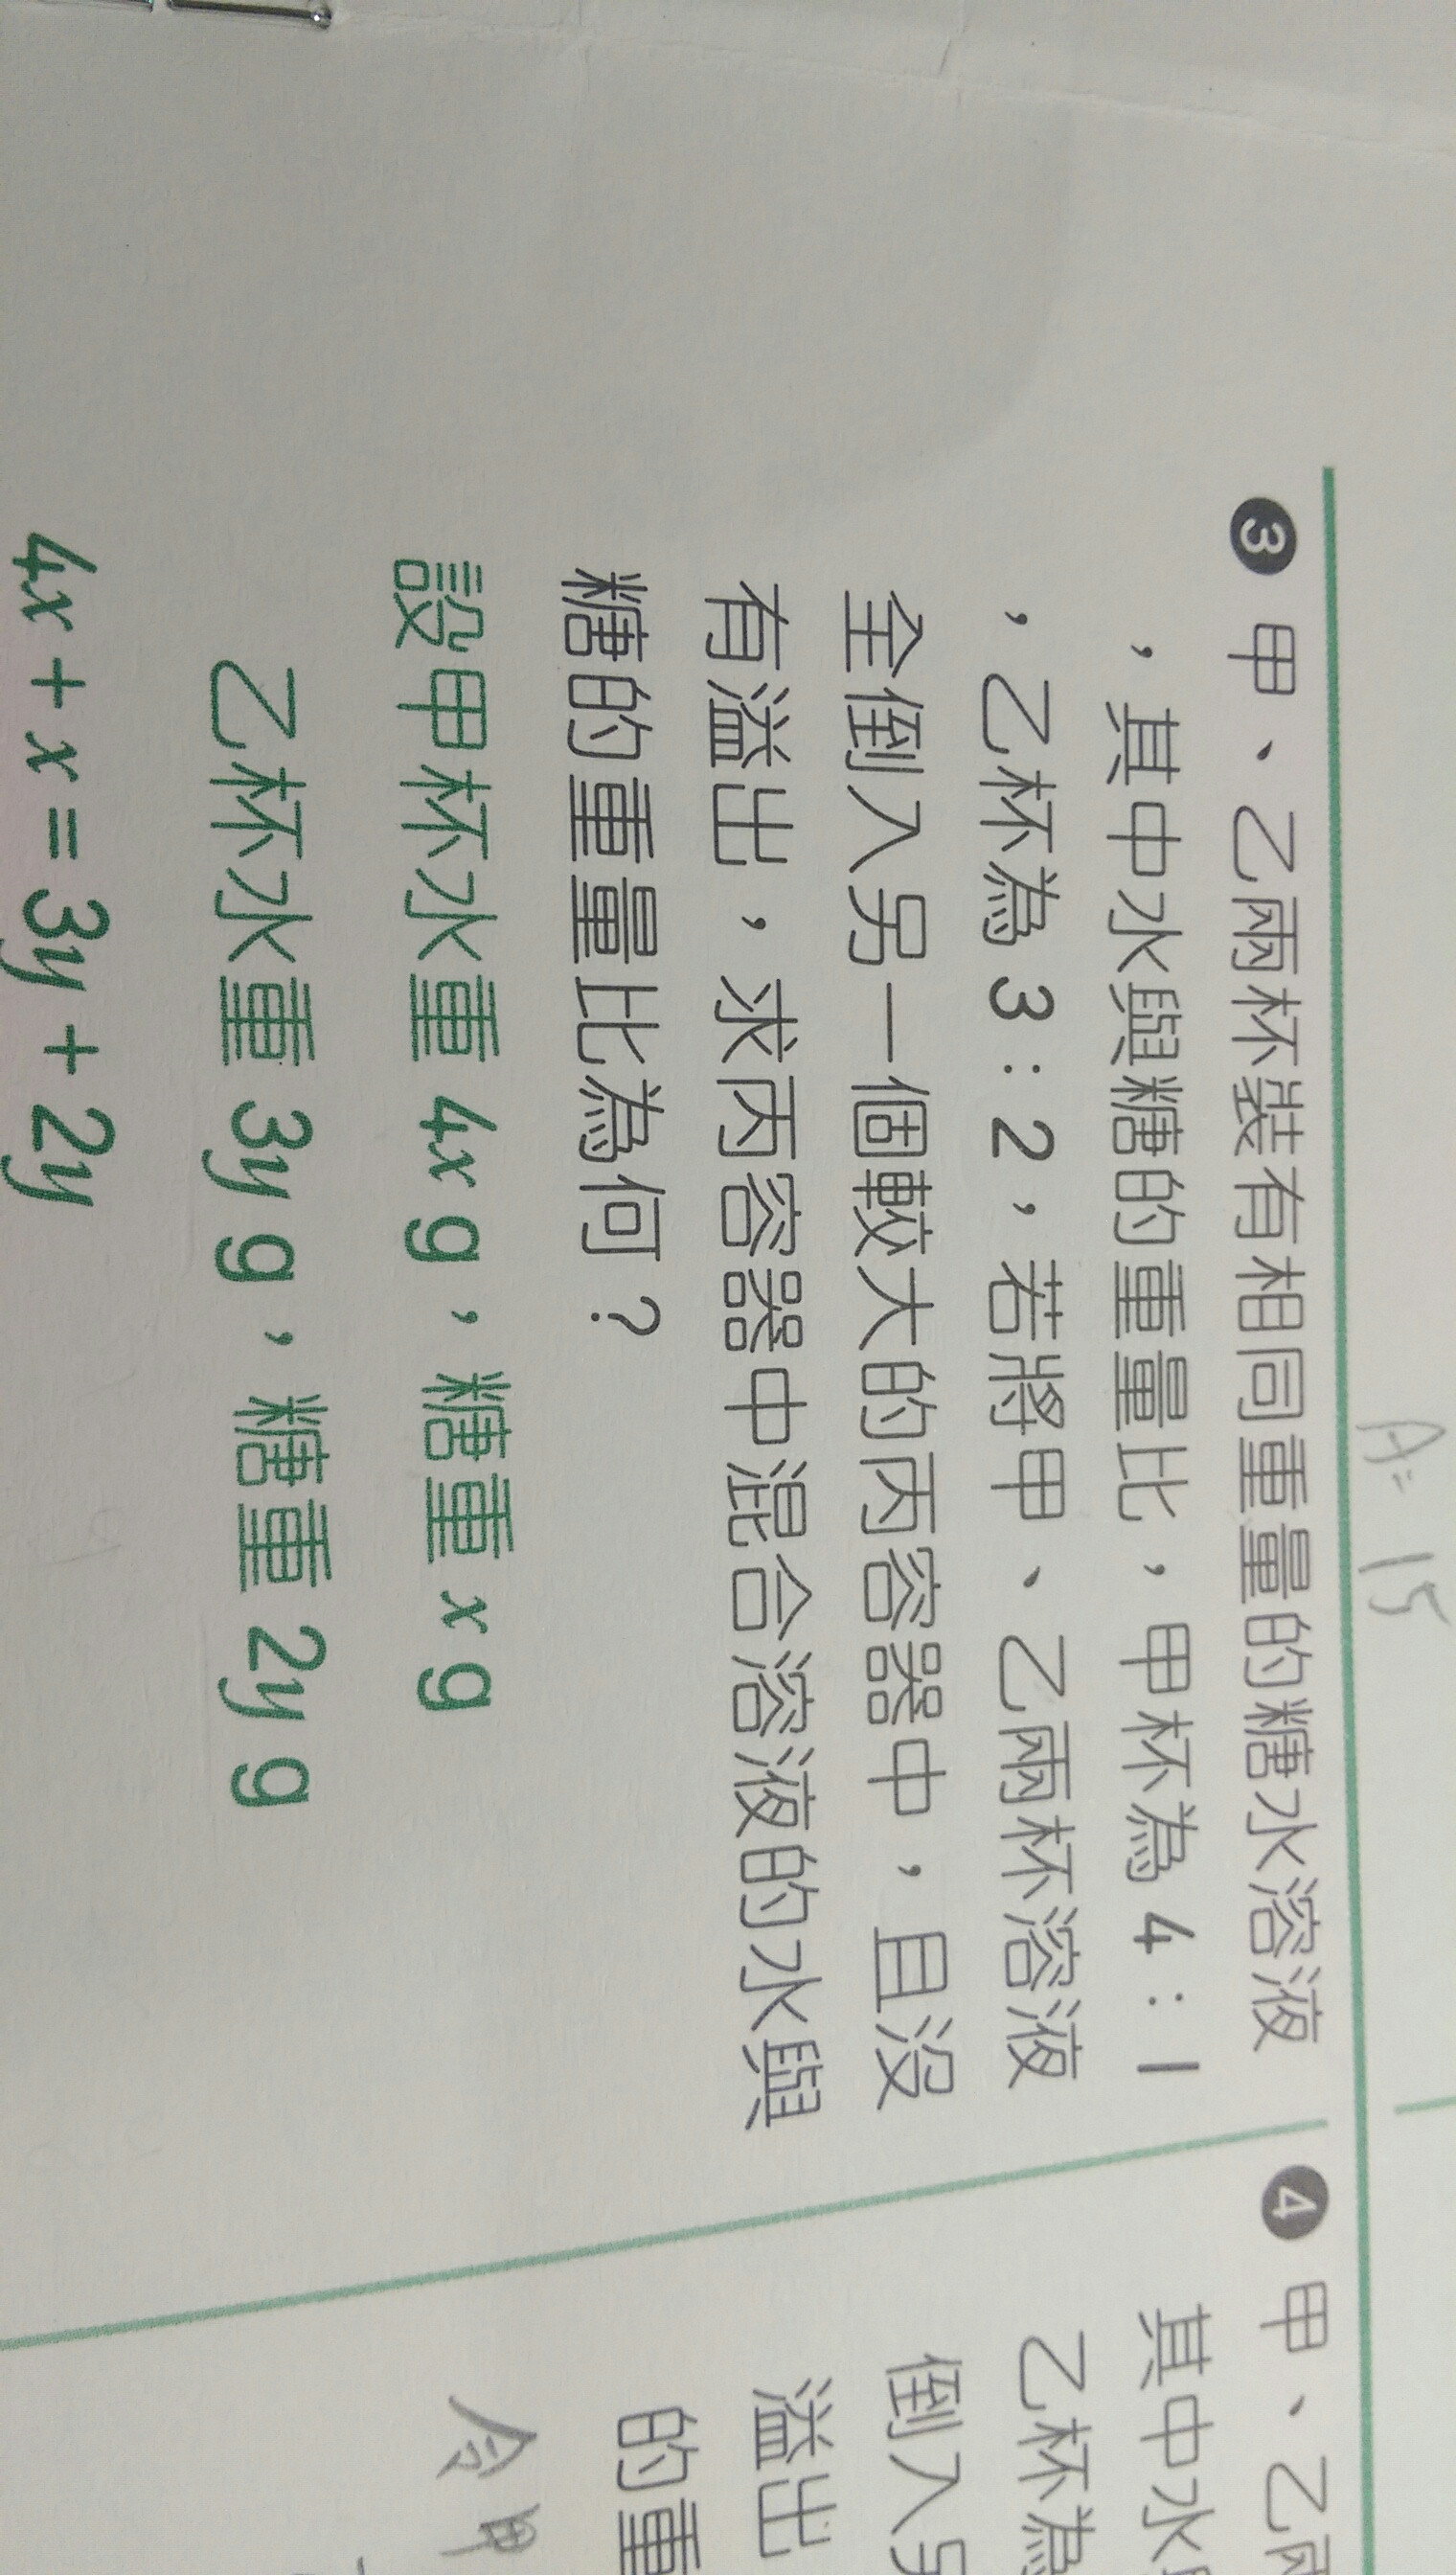 A= 15
❸ 甲、乙兩杯裝有相同重量的糖水溶液
,其中水與糖的重量比,甲杯為 4:1
,乙杯為 3:2,若將甲、乙兩杯溶液
全倒入另一個較大的丙容器中,且沒
有溢出,求丙容器中混合溶液的水與
糖的重量比為何?
設甲杯水重 4x g,糖重 x g
乙杯水重 3y g,糖重 2y g
4x + x = 3y + 2y
❹ 甲、乙兩
其中水
乙杯為
倒入另
溢出
的重
令甲